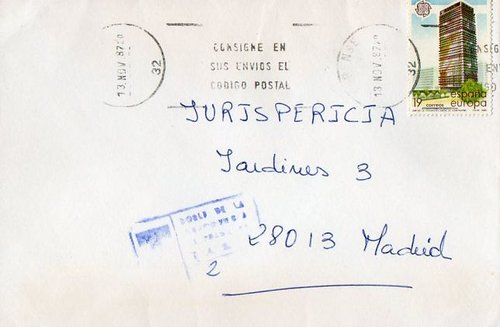 13 NOV 87
32
CONSIGNE EN
SUS ENVIOS EL
CODIGO POSTAL
13 NOV 87
32
19 correos
españa
europa
JURISPERICIA
Jardines 3
28013 Madrid
DOBLE DE LA
2